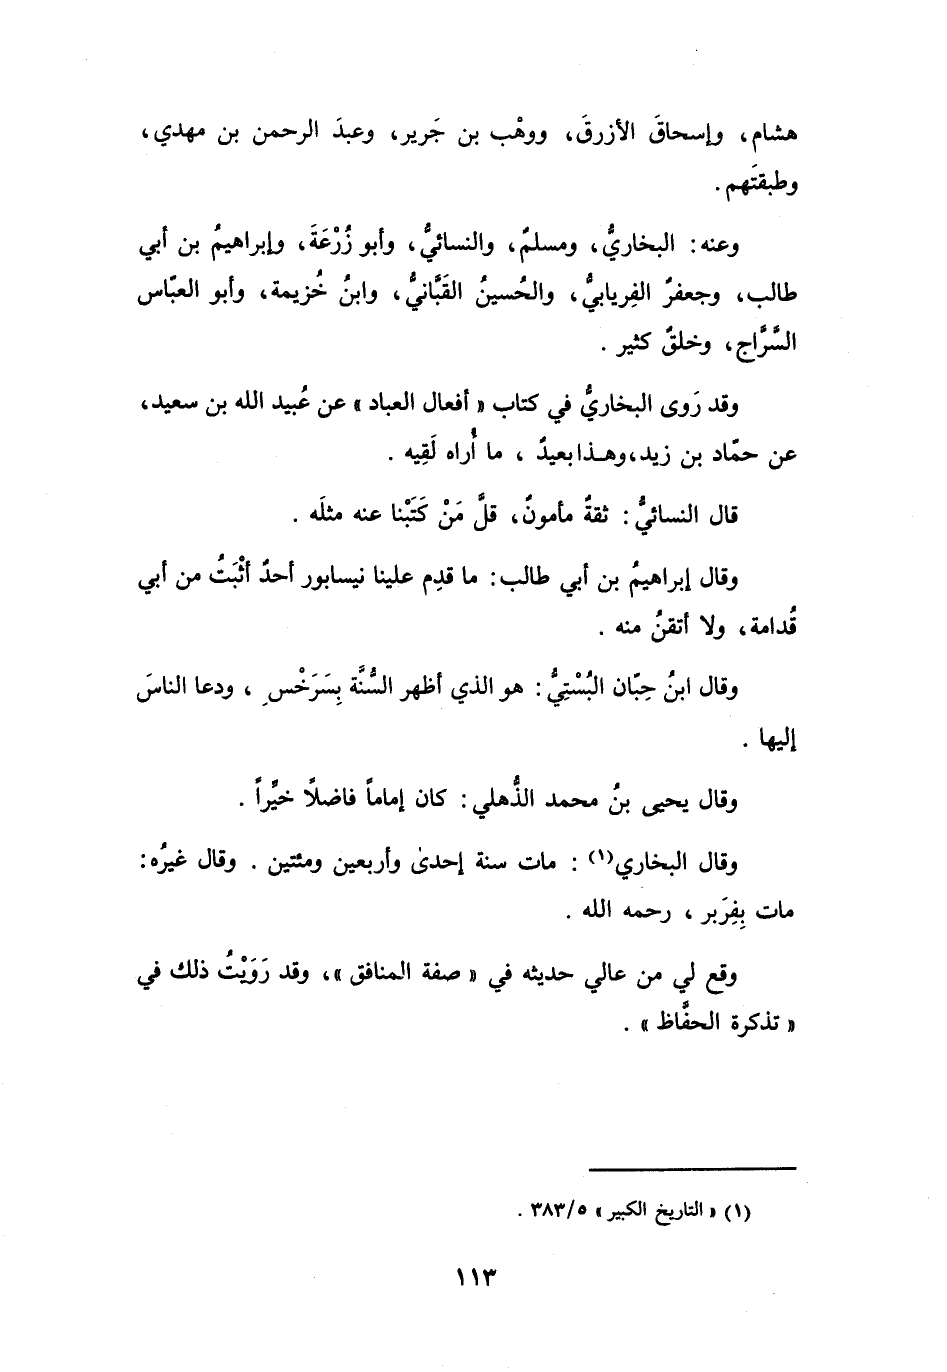 هشام، وإسحاقَ الأزرقَ، ووهْب بن جَرير، وعبدَ الرحمن بن مهدي،
وطبقتَهم.
وعنه: البخاريُّ، ومسلمٌ، والنسائيُّ، وأبو زُرْعَةَ، وإبراهيمُ بن أبي
طالب، وجعفرٌ الفِريابيُّ، والحُسينُ القَبَّانيُّ، وابنُ خُزيمة، وأبو العبّاس
السَّرَّاج، وخلقٌ كثير .
وقد رَوى البخاريُّ في كتاب « أفعال العباد » عن عُبيد الله بن سعيد،
عن حمّاد بن زيد،وهـذا بعيدٌ ، ما أُراه لَقِيه .
قال النسائيُّ: ثقةٌ مأمونٌ، قلَّ مَنْ كَتَبْنا عنه مثلَه .
وقال إبراهيمُ بن أبي طالب: ما قدِم علينا نيسابور أحدٌ أثْبَتُ من أبي
قُدامة، ولا أتقنُ منه .
وقال ابنُ حِبّان البُسْتِيُّ: هو الذي أظهر السُّنَّة بِسَرَخْسِ ، ودعا الناسَ
إليها .
وقال يحيى بنُ محمد الذُّهلي: كان إماماً فاضلاً خيِّراً .
وقال البخاري(١) : مات سنة إحدىٰ وأربعين ومئتين . وقال غيرُه:
مات بِفِرَبر ، رحمه الله .
وقع لي من عالي حديثه في « صفة المنافق »، وقد رَوَيْتُ ذلك في
« تذكرة الحفَّاظ » .
(١) « التاريخ الكبير » ٣٨٣/٥ .
١١٣